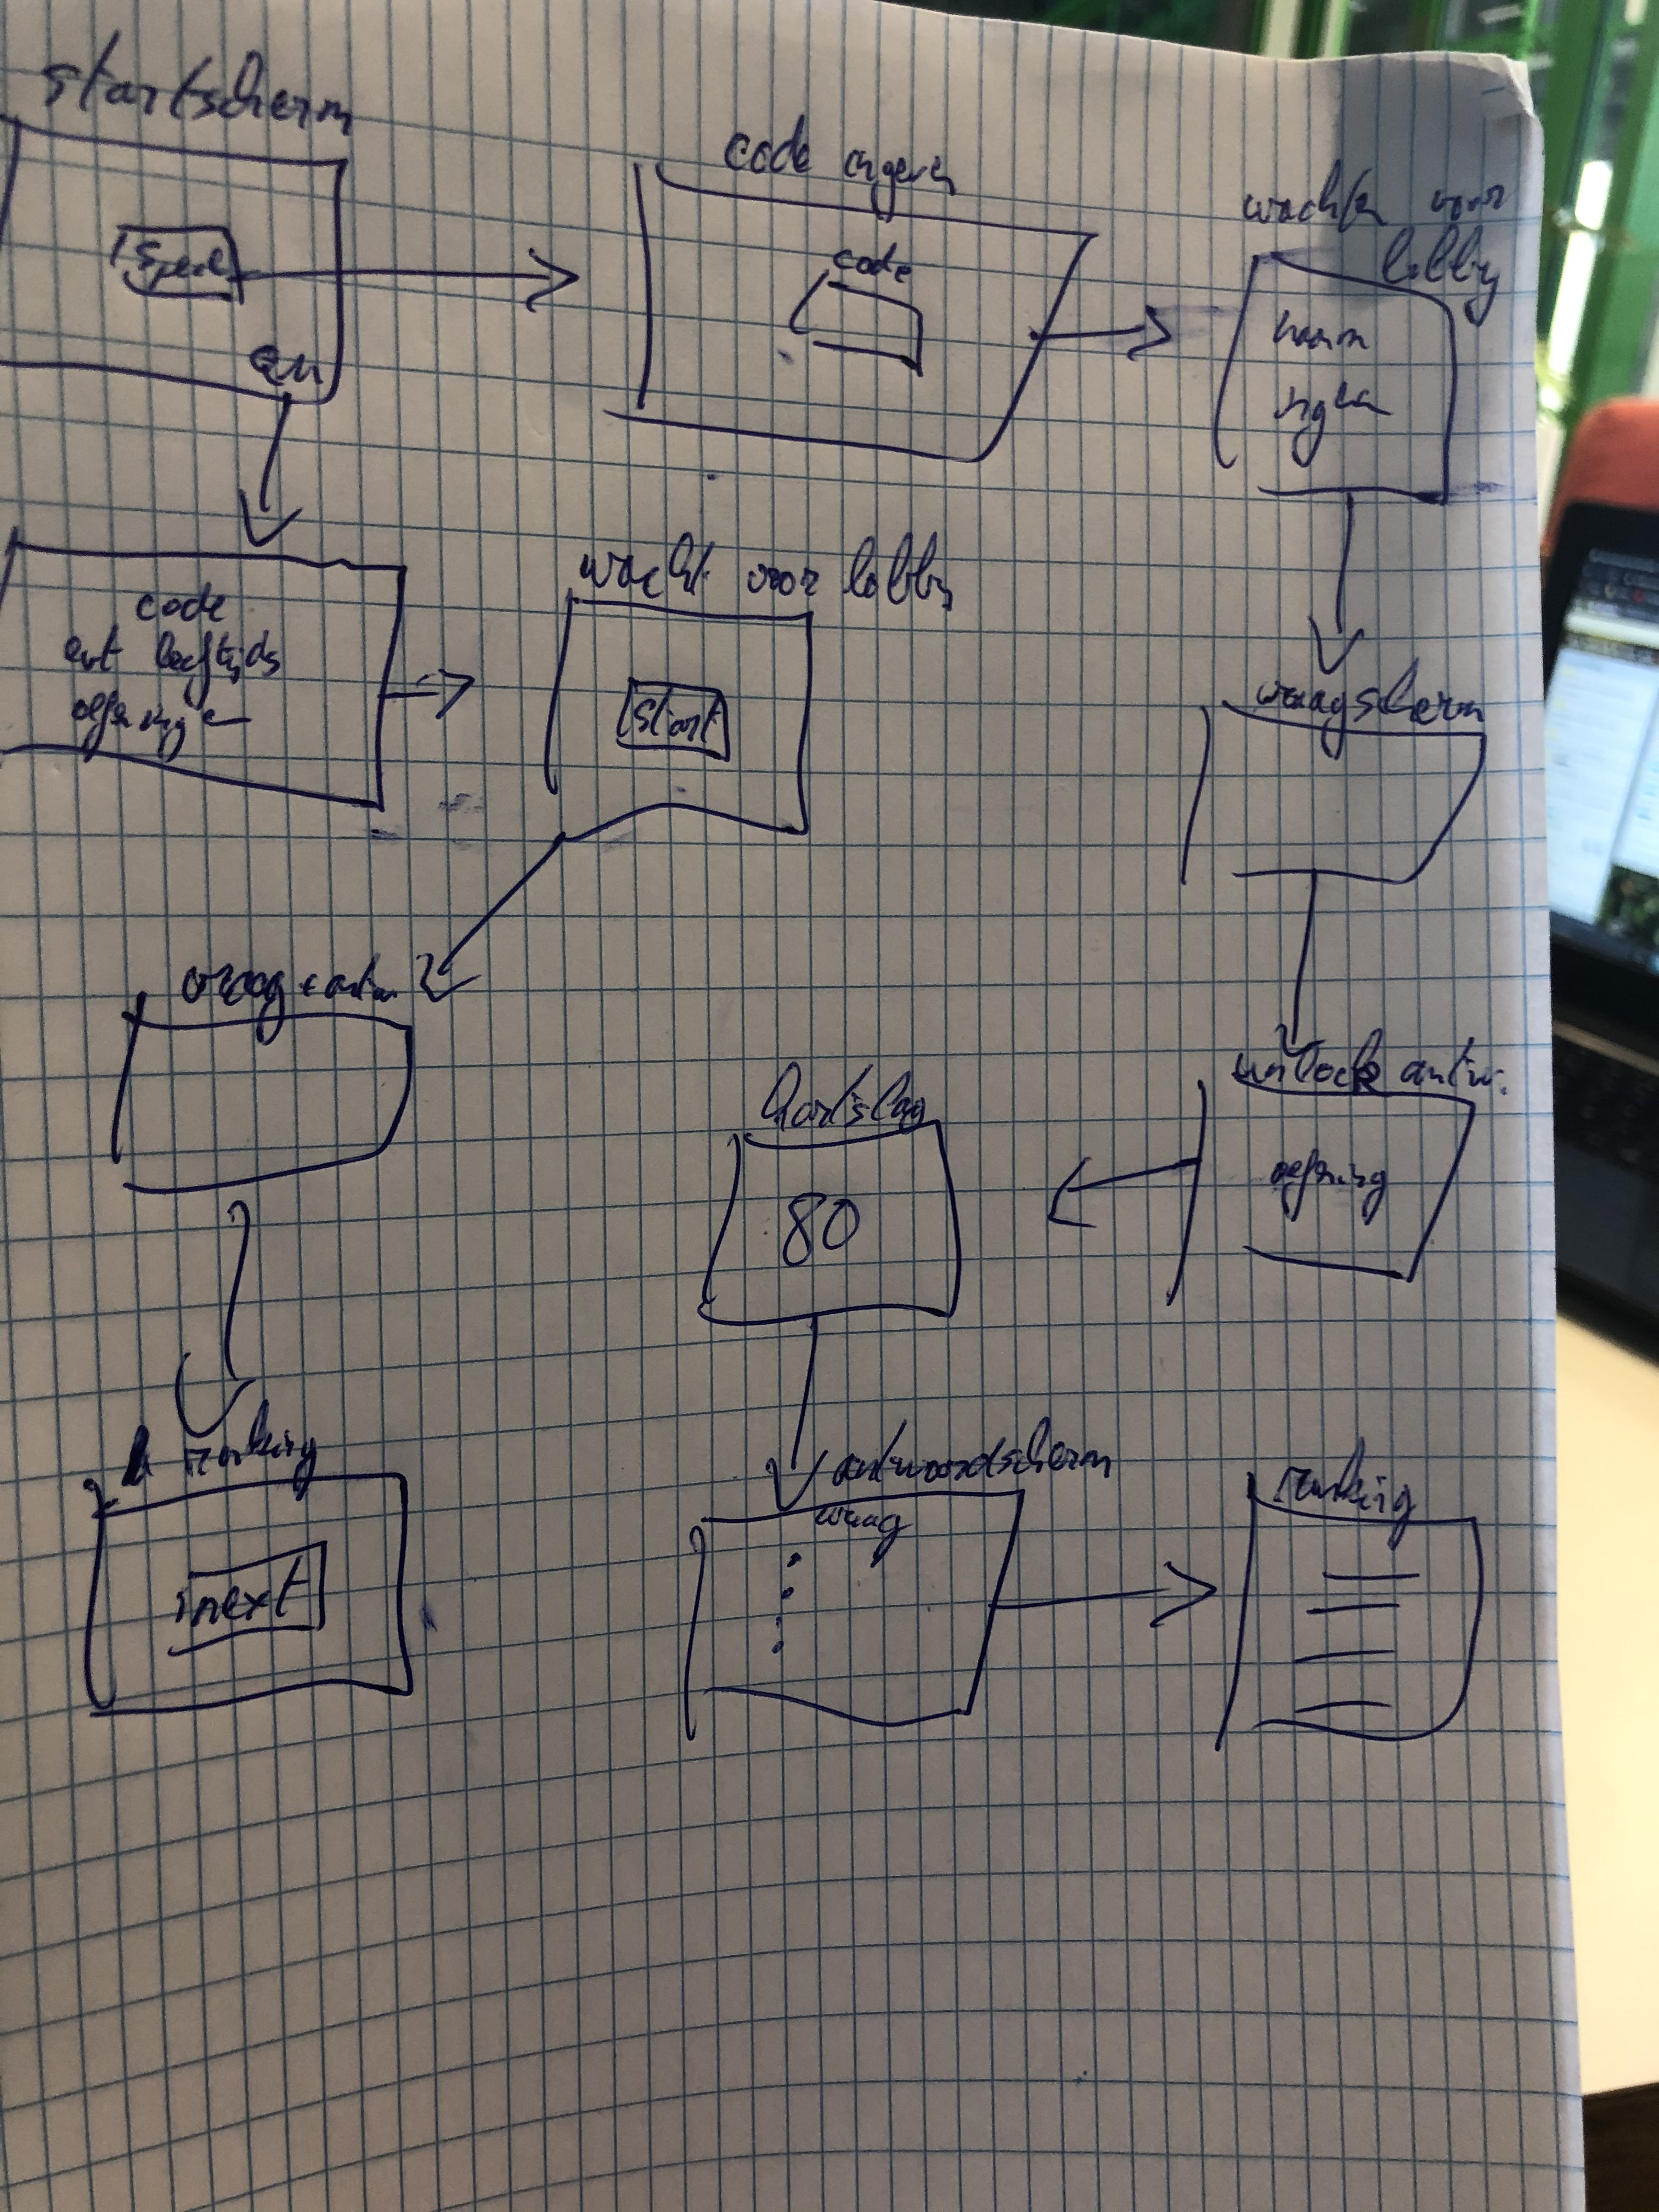 startscherm
Speel
code ingeven
code
wachten voor
lobby
naam
ingeven
code
evt leeftijds
oefeningen
wacht voor lobby
start
vraagscherm
vraag + antw.
unlock antw.
oefening
hartslag
80
ranking
next
antwoordscherm
vraag
ranking